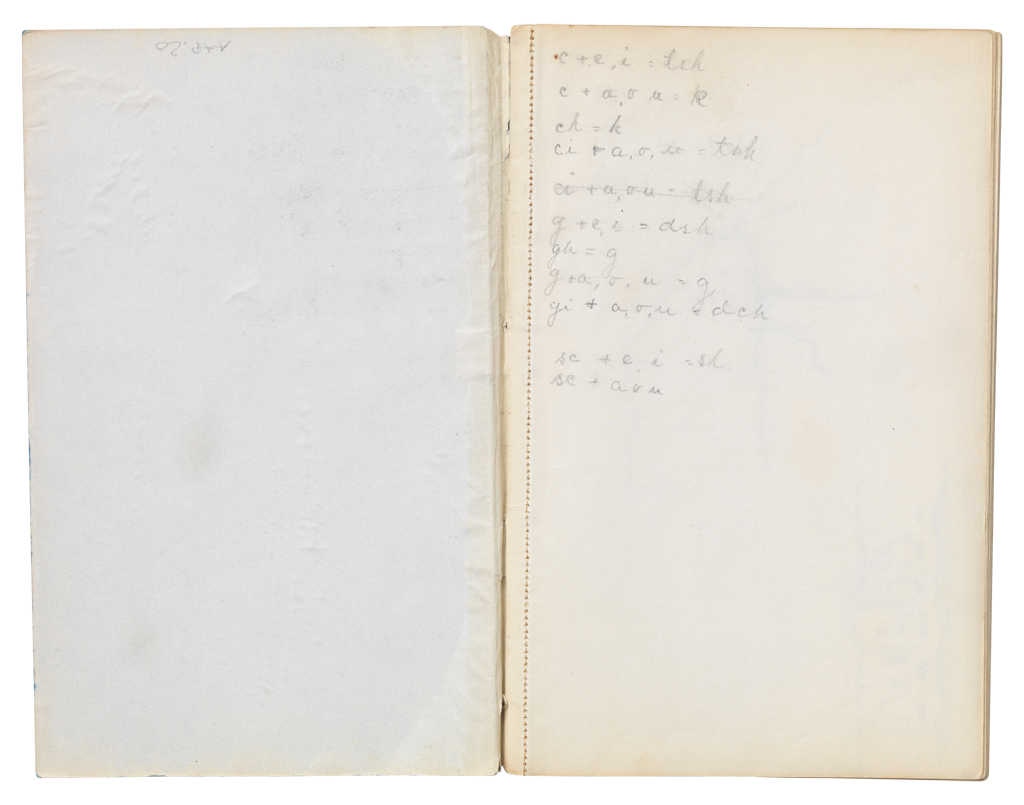 c + e, i = tsh
c + a, o u = k
ch = k
ci + a, o, u = tsh
ci + a, o u = tsh
g + e, i = dsh
gh = g
g + a, o, u = g
gi + a, o, u = dch
sc + e, i = sh
sc + a o u